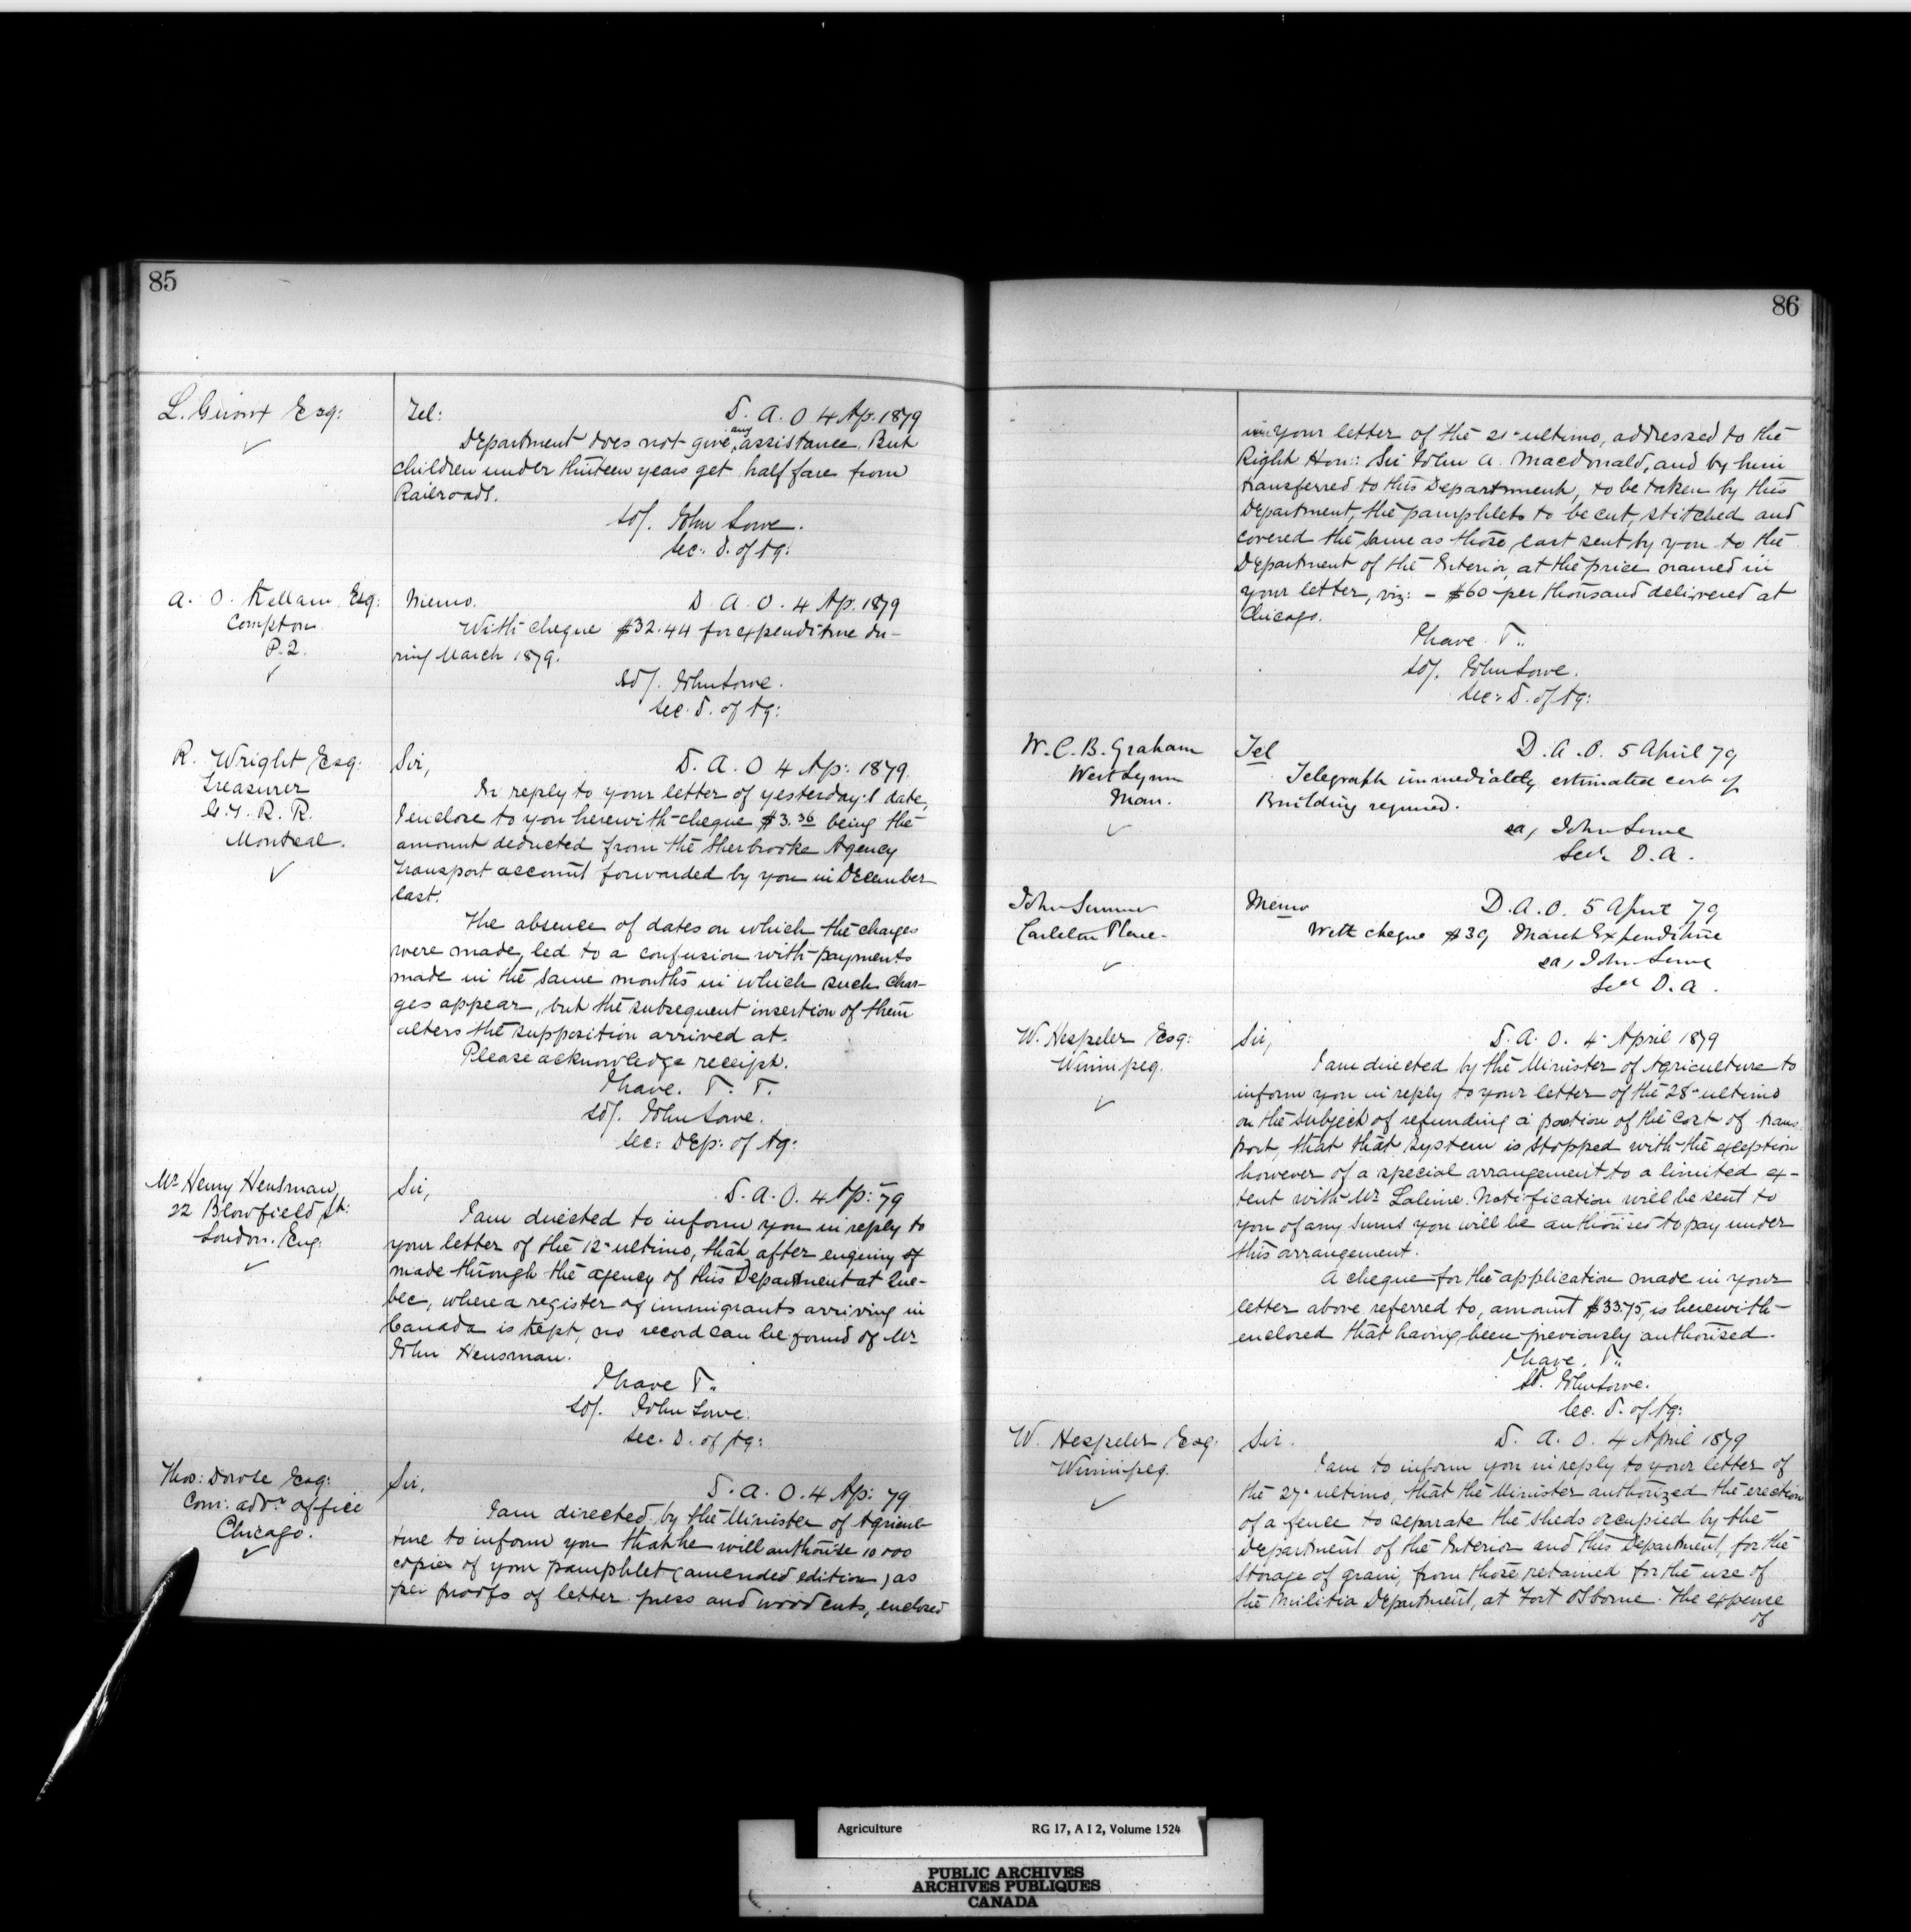 85
L. Esq:
Tel: D. A. O 4 Ap. 1879
Department does not give any assistance. But
children under thirteen years get half fare from
Railroads.
sd/. John Lowe.
Sec: D. of Ag:
A. O. Kellam Esq:
Compton
P. 2.
Memo. D. A. O. 4 Ap. 1879
With cheque $32.44 for expenditure du-
ring March 1879.
sd/. John Lowe.
Sec. D. of Ag:
R. Wright Esq:
Treasurer
G. T. R. R.
Montreal.
Sir, D. A. O 4 Ap: 1879
In reply to your letter of yesterday's date,
I enclose to you herewith cheque $3.36 being the
amount deducted from the Sherbrooke Agency
transport account forwarded by you in December
last.
The absence of dates on which the charges
were made, led to a confusion with payments
made in the same months in which such char-
ges appear, but the subsequent insertion of them
alters the supposition arrived at.
Please acknowledge receipt.
I have.
sd/. John Lowe.
Sec: Dep: of Ag:
Mr Henry Hensman
22 Blowfield St:
London. Eng:
Sir, D. A. O. 4 Ap: 79
I am directed to inform you in reply to
your letter of the 12th ultimo, that after enquiry of
made through the agency of this Department at Que-
bec, where a register of immigrants arriving in
Canada is kept, no record can be found of Mr
John Hensman.
I have
sd/. John Lowe.
Sec. D. of Ag:
Thos: Dowse Esq:
Com: advr office
Chicago.
Sir, D. A. O. 4 Ap: 79
I am directed by the Minister of Agricul-
ture to inform you that he will authorise 10 000
copies of your pamphlet (amended edition) as
per proofs of letter press and wood cuts, enclosed
86
in your letter of the 21st ultimo, addressed to the
Right Hon:: Sir John A. Macdonald, and by him
transferred to this Department, to be taken by this
Department, the pamphlets to be cut, stitched and
covered the same as those last sent by you to the
Department of the Interior, at the price named in
your letter, viz: - $60 per thousand delivered at
Chicago.
I have
sd/. John Lowe.
Sec: D. of Ag:
W. C. B. Graham
West Lynn
Man.
Tel D. A. O. 5 April 79
Telegraph immediately estimated cost of
Building required.
John Lowe
Secy D. A.
John Sumner
Carleton Place
Memo D. A. O. 5 April 79
With cheque $39 March Expenditure
John Lowe
Secy D. A.
W. Hespeler Esq:
Winnipeg.
Sir, D. A. O. 4 April 1879
I am directed by the Minister of Agriculture to
inform you in reply to your letter of the 28th ultimo
on the subject of refunding a portion of the cost of trans
port, that that system is stopped with the exception
however of a special arrangement to a limited ex-
tent with Mr Lalime. Notification will be sent to
you of any sums you will be authorised to pay under
this arrangement.
A cheque for the application made in your
letter above referred to, amount $33.75, is herewith
enclosed that having been previously authorised.
I have.
sd. John Lowe.
Sec. D. of Ag:
W. Hespeler Esq:
Winnipeg.
Sir. D. A. O. 4 April 1879
I am to inform you in reply to your letter of
the 27th ultimo, that the Minister authorized the erection
of a fence to separate the sheds occupied by the
Department of the Interior and this Department, for the
storage of grain, from those retained for the use of
the Militia Department, at Fort Osborne. The expense
of
Agriculture RG 17, A I 2, Volume 1524
PUBLIC ARCHIVES
ARCHIVES PUBLIQUES
CANADA